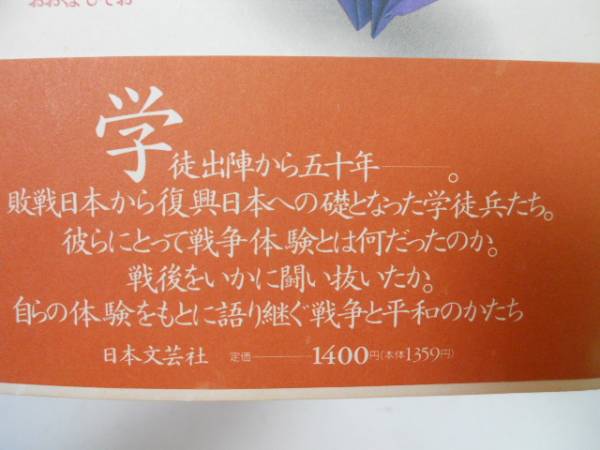 おおくぼひでお
学徒出陣から五十年――。
敗戦日本から復興日本への礎となった学徒兵たち。
彼らにとって戦争体験とは何だったのか。
戦後をいかに闘い抜いたか。
自らの体験をもとに語り継ぐ戦争と平和のかたち
日本文芸社 定価――1400円(本体1359円)